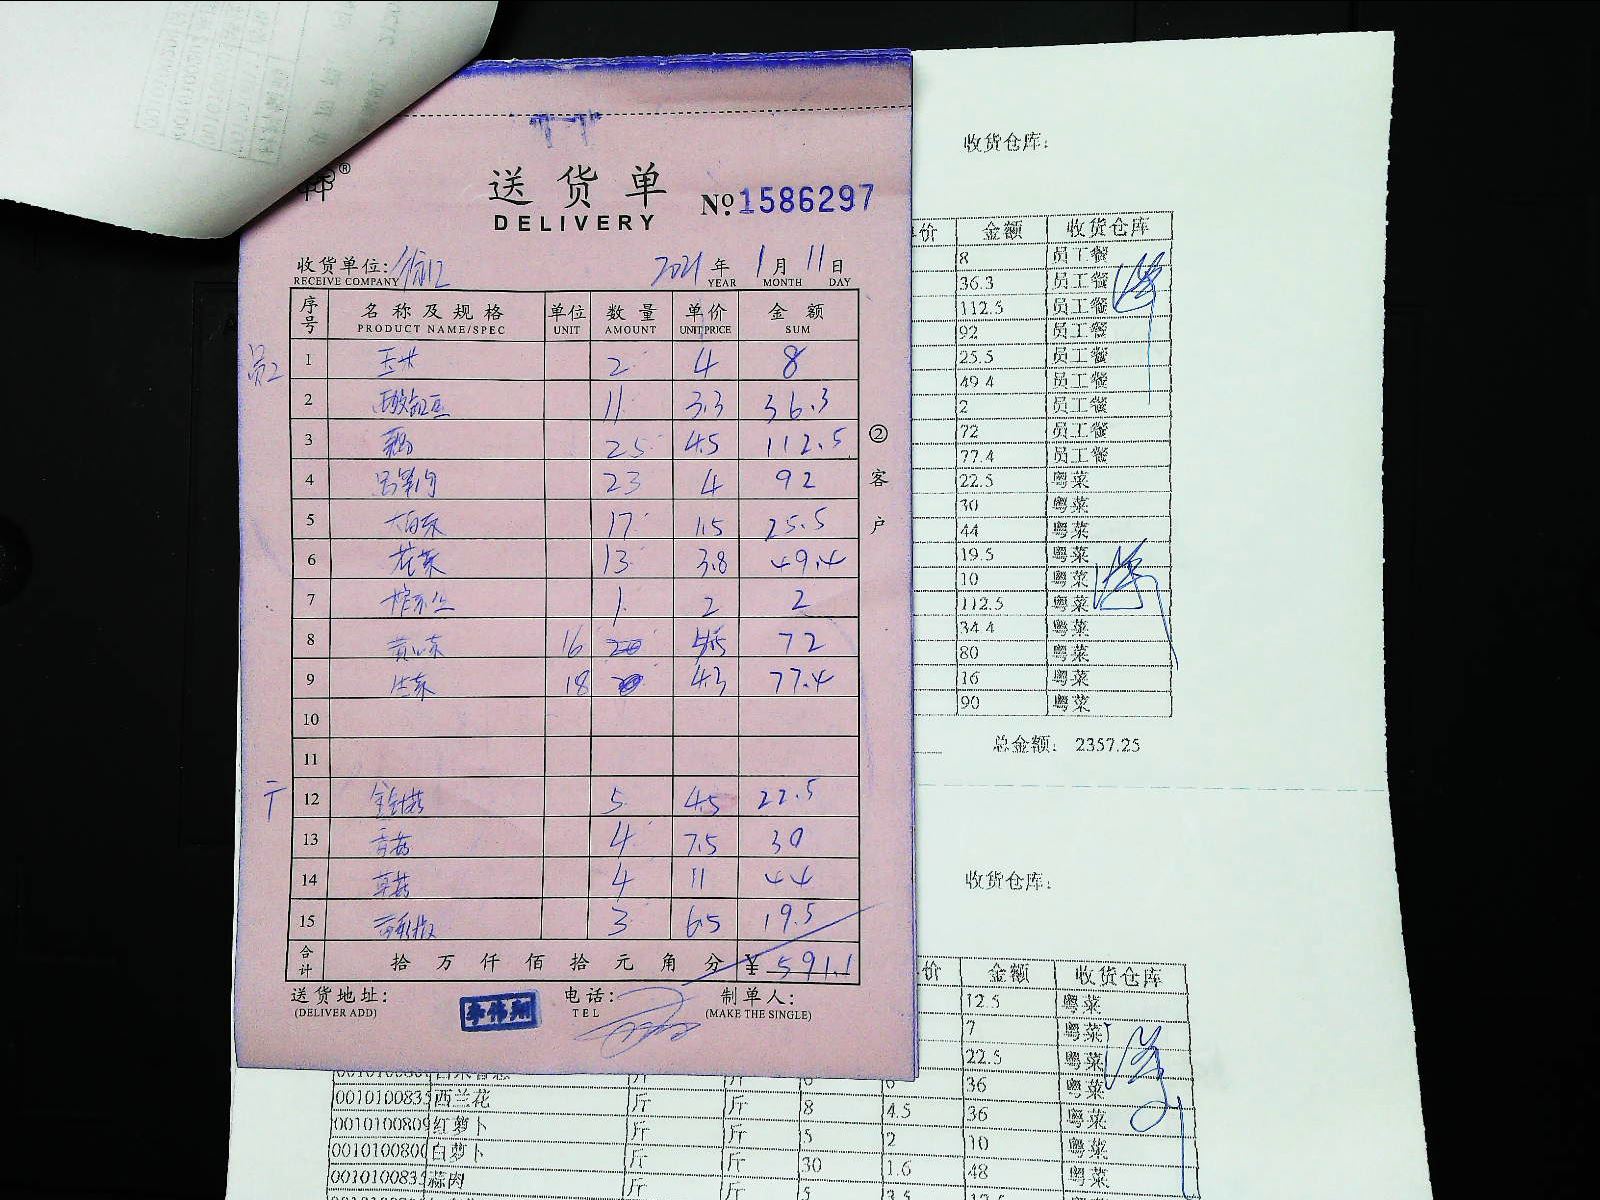 送货单
DELIVERY
№ 1586297
收货单位:
RECEIVE COMPANY
2021 年 1 月 11 日
YEAR MONTH DAY
序号 名称及规格 单位 数量 单价 金额
PRODUCT NAME/SPEC UNIT AMOUNT UNIT PRICE SUM
员工 1 玉米 2 4 8
2 酸豇豆 11 3.3 36.3
3 25 4.5 112.5
4 23 4 92
5 大白菜 17 1.5 25.5
6 花菜 13 3.8 49.4
7 1 2 2
8 16 4.5 72
9 生菜 18 4.3 77.4
10
11
12 金针菇 5 4.5 22.5
13 香菇 4 7.5 30
14 草菇 4 11 44
15 3 6.5 19.5
合计 拾 万 仟 佰 拾 元 角 分 ¥ 591.1
送货地址: 电话: 制单人:
(DELIVER ADD) TEL (MAKE THE SINGLE)
李伟翔
②客户
收货仓库:
价 金额 收货仓库
8 员工餐
36.3 员工餐
112.5 员工餐
92 员工餐
25.5 员工餐
49.4 员工餐
2 员工餐
72 员工餐
77.4 员工餐
22.5 粤菜
30 粤菜
44 粤菜
19.5 粤菜
10 粤菜
112.5 粤菜
34.4 粤菜
80 粤菜
16 粤菜
90 粤菜
总金额: 2357.25
收货仓库:
价 金额 收货仓库
12.5 粤菜
7 粤菜
22.5 粤菜
斤 斤 6 6 36 粤菜
001010083 西兰花 斤 斤 8 4.5 36 粤菜
0010100809 红萝卜 斤 斤 5 2 10 粤菜
001010080 白萝卜 斤 斤 30 1.6 48 粤菜
001010083 蒜肉 斤 斤 5 3.5